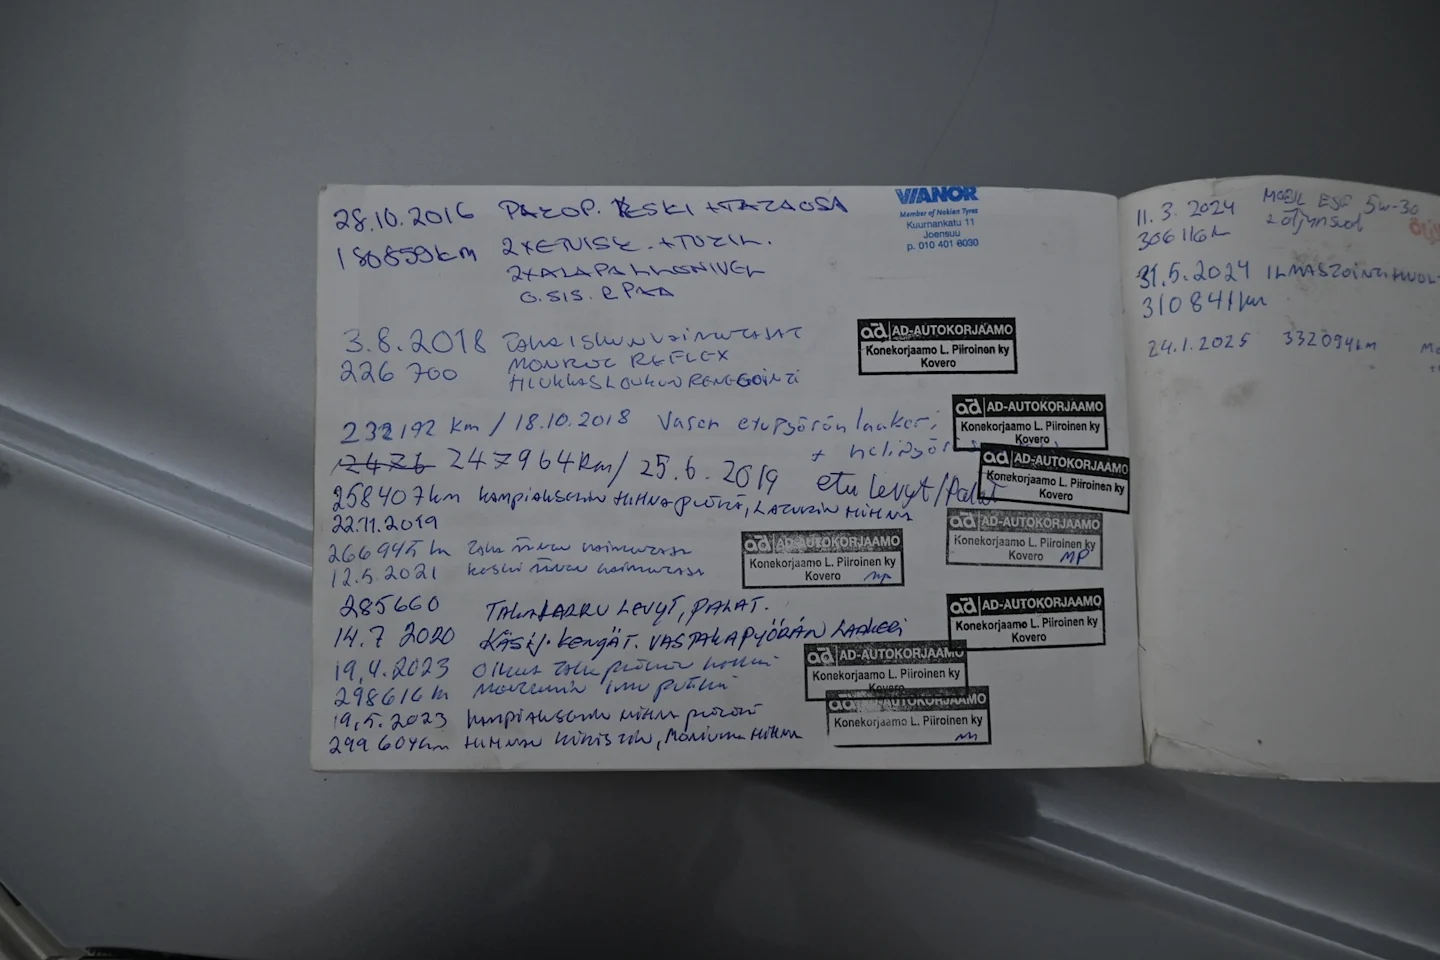 28.10.2016 PAKOP. KESKI + TAKAOSA
180859km 2x ETUISK. + TUKIL.
2x ALAPALLONIVEL
O. SIS. R PÄÄ
VIANOR
Member of Nokian Tyres
Kuurnankatu 11
Joensuu
p. 010 401 6030
3.8.2018 TAKAISKUNVAIMENTIMET
226 700 MONROE REFLEX
HIUKKAS
ad AD-AUTOKORJAAMO
Konekorjaamo L. Piiroinen ky
Kovero
232192 km / 18.10.2018 Vasen etupyörän laakeri
+
ad AD-AUTOKORJAAMO
Konekorjaamo L. Piiroinen ky
Kovero
2476 247964km / 25.6.2019 etu levyt/palat
ad AD-AUTOKORJAAMO
Konekorjaamo L. Piiroinen ky
Kovero
258407km KAMPIAKSELIN HIHNAPYÖRÄ, LATURIN HIHNA
22.11.2019
ad AD-AUTOKORJAAMO
Konekorjaamo L. Piiroinen ky
Kovero MP
266945 km Taka
12.5.2021 Keski
ad AD-AUTOKORJAAMO
Konekorjaamo L. Piiroinen ky
Kovero MP
285660 TAKAJARRU LEVYT, PALAT.
14.7 2020 KÄSIJ. KENGÄT. VASTAKAPYÖRÄN LAAKERI
ad AD-AUTOKORJAAMO
Konekorjaamo L. Piiroinen ky
Kovero
19.4.2023 Oikea taka pyörän
298616 km
ad AD-AUTOKORJAAMO
Konekorjaamo L. Piiroinen ky
Kovero
19.5.2023 KAMPIAKSELIN HIHNA PYÖRÄ
299 604km HIHNAN KIRISTIN, MONIURA HIHNA
ad AD-AUTOKORJAAMO
Konekorjaamo L. Piiroinen ky
11.3.2024 MOBIL ESP 5W-30
306116km + öljynsuod
31.5.2024 ILMASTOINTIHUOL
310841km
24.1.2025 332094km